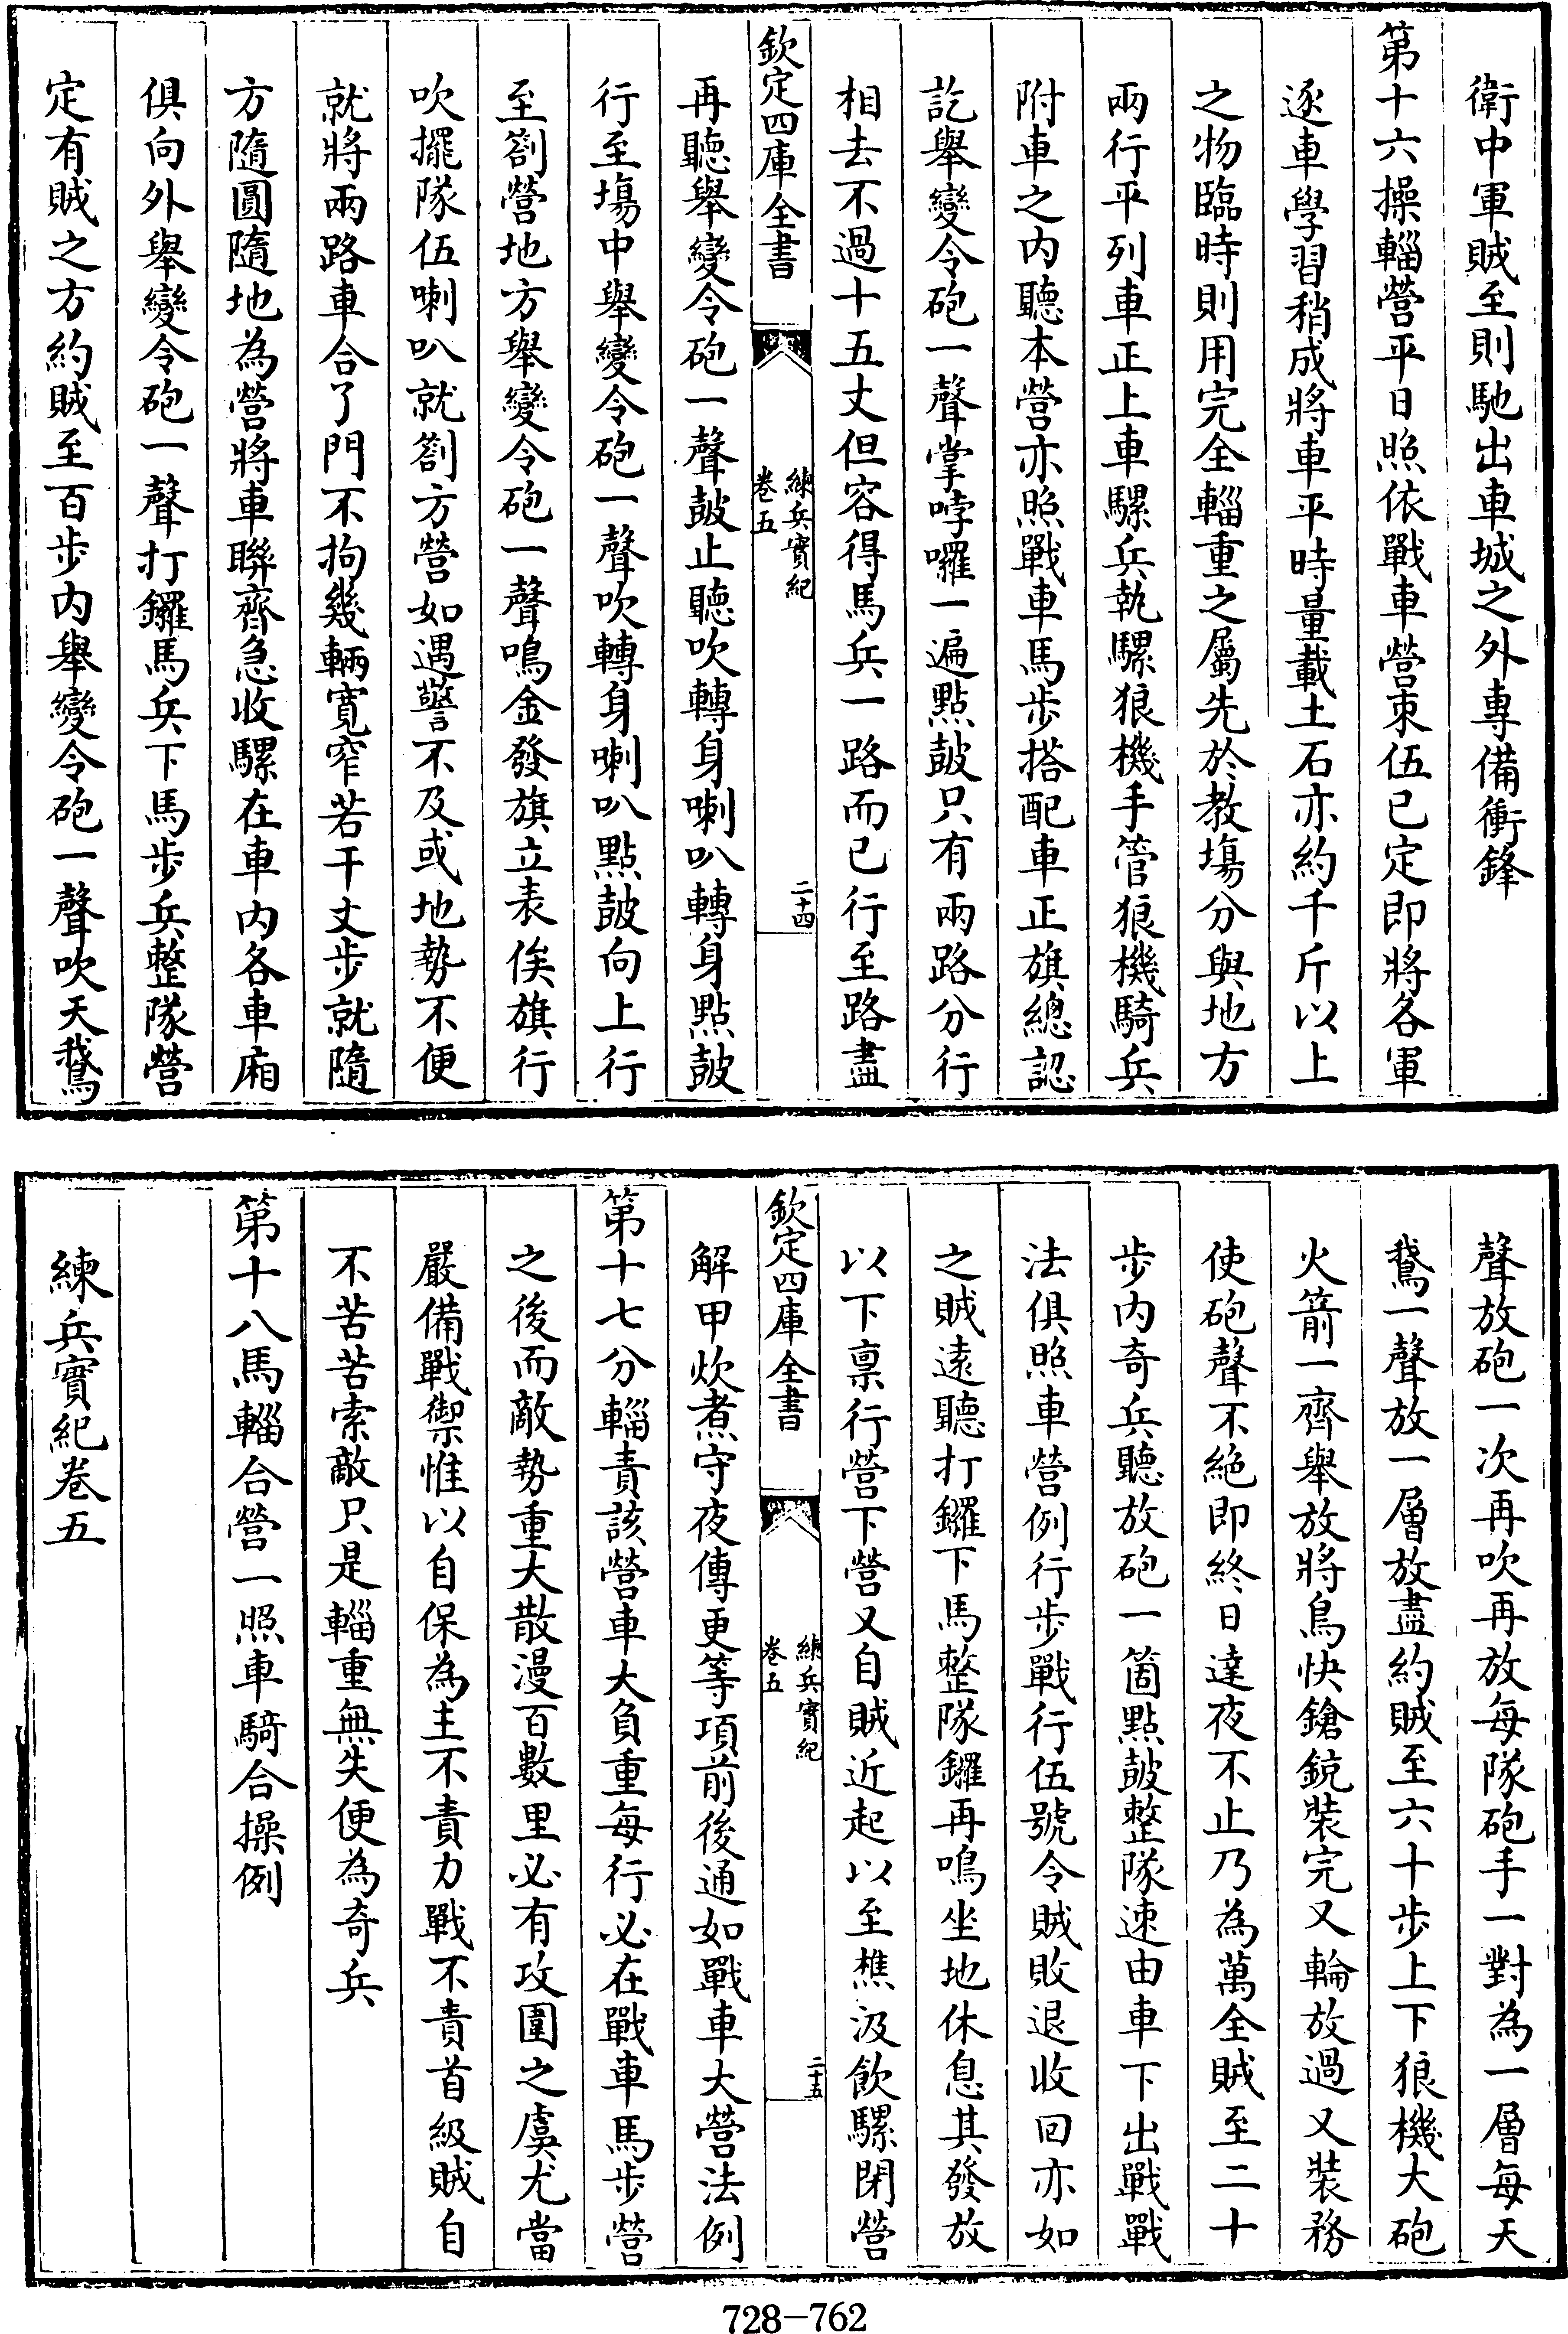 衛中軍賊至則馳出車城之外專備衝鋒
第十六操輜營平日照依戰車營束伍已定即將各軍
逐車學習稍成將車平時量載土石亦約千斤以上
之物臨時則用完全輜重之屬先於教塲分與地方
兩行平列車正上車騾兵執騾狼機手管狼機騎兵
附車之内聽本營亦照戰車馬步搭配車正旗總認
訖舉變令砲一聲掌哱囉一遍點皷只有兩路分行
相去不過十五丈但容得馬兵一路而已行至路盡
欽定四庫全書
練兵實紀
卷五
二十四
再聽舉變令砲一聲皷止聽吹轉身喇叭轉身點皷
行至塲中舉變令砲一聲吹轉身喇叭點皷向上行
至劄營地方舉變令砲一聲鳴金發旗立表俟旗行
吹擺隊伍喇叭就劄方營如遇警不及或地勢不便
就將兩路車合了門不拘幾輛寛窄若干丈步就隨
方隨圓隨地為營將車聯齊急收騾在車内各車廂
俱向外舉變令砲一聲打鑼馬兵下馬步兵整隊營
定有賊之方約賊至百步内舉變令砲一聲吹天鵞
聲放砲一次再吹再放每隊砲手一對為一層每天
鵞一聲放一層放盡約賊至六十步上下狼機大砲
火箭一齊舉放將鳥快鎗銃裝完又輪放過又裝務
使砲聲不絶即終日達夜不止乃為萬全賊至二十
步内奇兵聽放砲一箇點皷整隊速由車下出戰戰
法俱照車營例行步戰行伍號令賊敗退收回亦如
之賊遠聽打鑼下馬整隊鑼再鳴坐地休息其發放
以下禀行營下營又自賊近起以至樵汲飲騾閉營
欽定四庫全書
練兵實紀
卷五
二十五
解甲炊煮守夜傳更等項前後通如戰車大營法例
第十七分輜責該營車大負重每行必在戰車馬步營
之後而敵勢重大散漫百數里必有攻圍之虞尤當
嚴備戰禦惟以自保為主不責力戰不責首級賊自
不苦苦索敵只是輜重無失便為奇兵
第十八馬輜合營一照車騎合操例
練兵實紀卷五
728-762